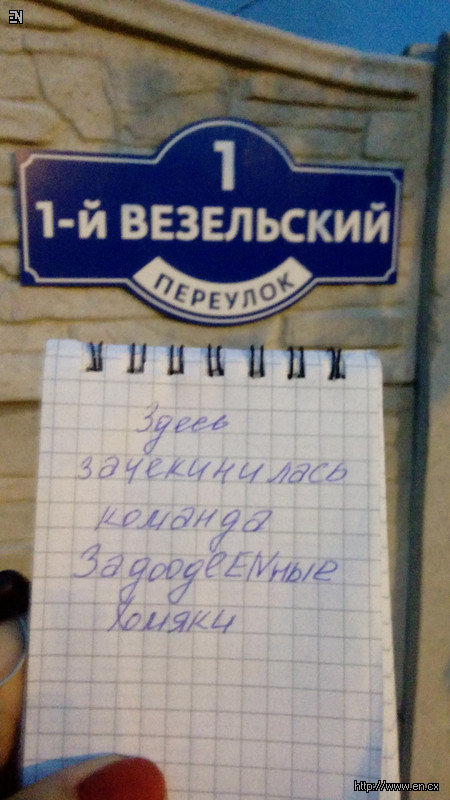 EN
1
1-й ВЕЗЕЛЬСКИЙ
ПЕРЕУЛОК
Здесь
зачекинилась
команда
ЗадоодеENные
хомяки
http://www.en.cx